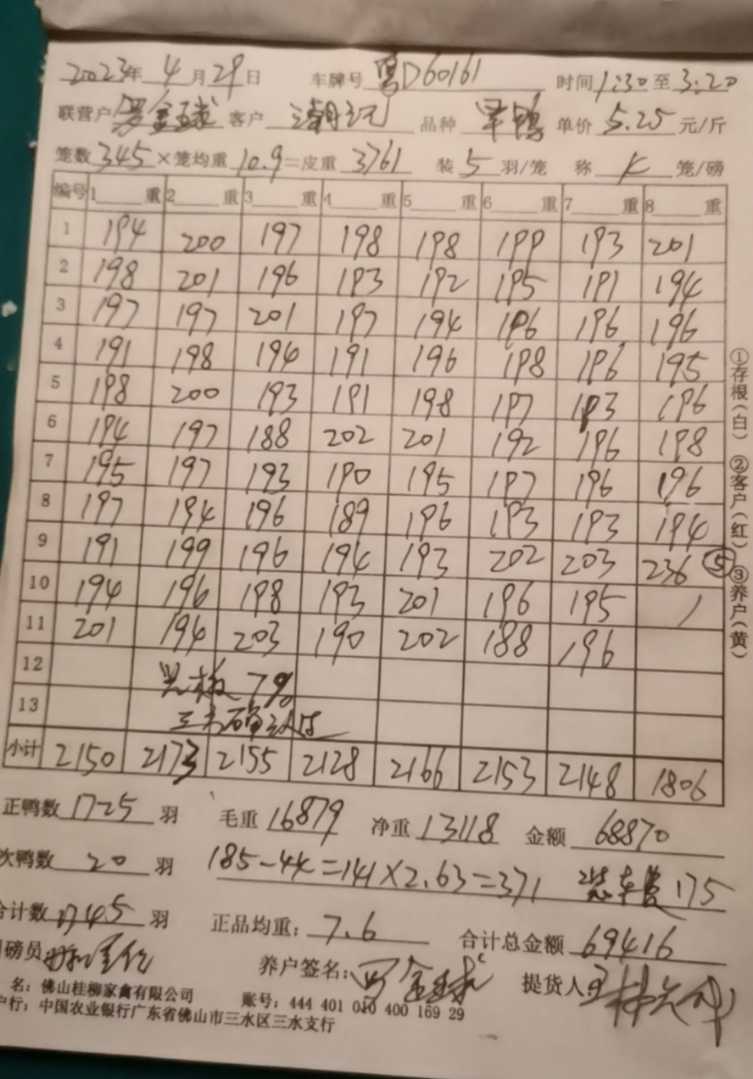 2023年 4 月 29 日 车牌号 粤D60161 时间 1:30 至 3:20
联营户 罗金球 客户 潮记 品种 单价 5.25 元/斤
笼数 345 ×笼均重 10.9 =皮重 3761 装 5 羽/笼 称 笼/磅
编号 1 重 2 重 3 重 4 重 5 重 6 重 7 重 8 重
1 194 200 197 198 198 199 193 201
2 198 201 196 193 192 195 191 194
3 197 197 201 197 194 196 196 196
4 191 198 194 191 196 198 196 195
5 198 200 193 191 198 197 193 196
6 194 197 188 202 201 192 196 198
7 195 197 193 190 195 197 196 196
8 197 194 196 189 196 193 193 194
9 191 199 196 194 193 202 203 236 ⑤
10 194 196 198 193 201 196 195 /
11 201 194 203 190 202 188 196
12 7%
13
小计 2150 2173 2155 2128 2166 2153 2148 1806
正鸭数 1725 羽 毛重 16879 净重 13118 金额 68870
次鸭数 20 羽 185-44=141×2.63=371 装车费 175
合计数 1745 羽 正品均重: 7.6 合计总金额 69416
司磅员 养户签名: 罗金球 提货人
名: 佛山桂柳家禽有限公司 账号: 444 401 010 400 169 29
户行: 中国农业银行广东省佛山市三水区三水支行
①存根(白) ②客户(红) ③养户(黄)